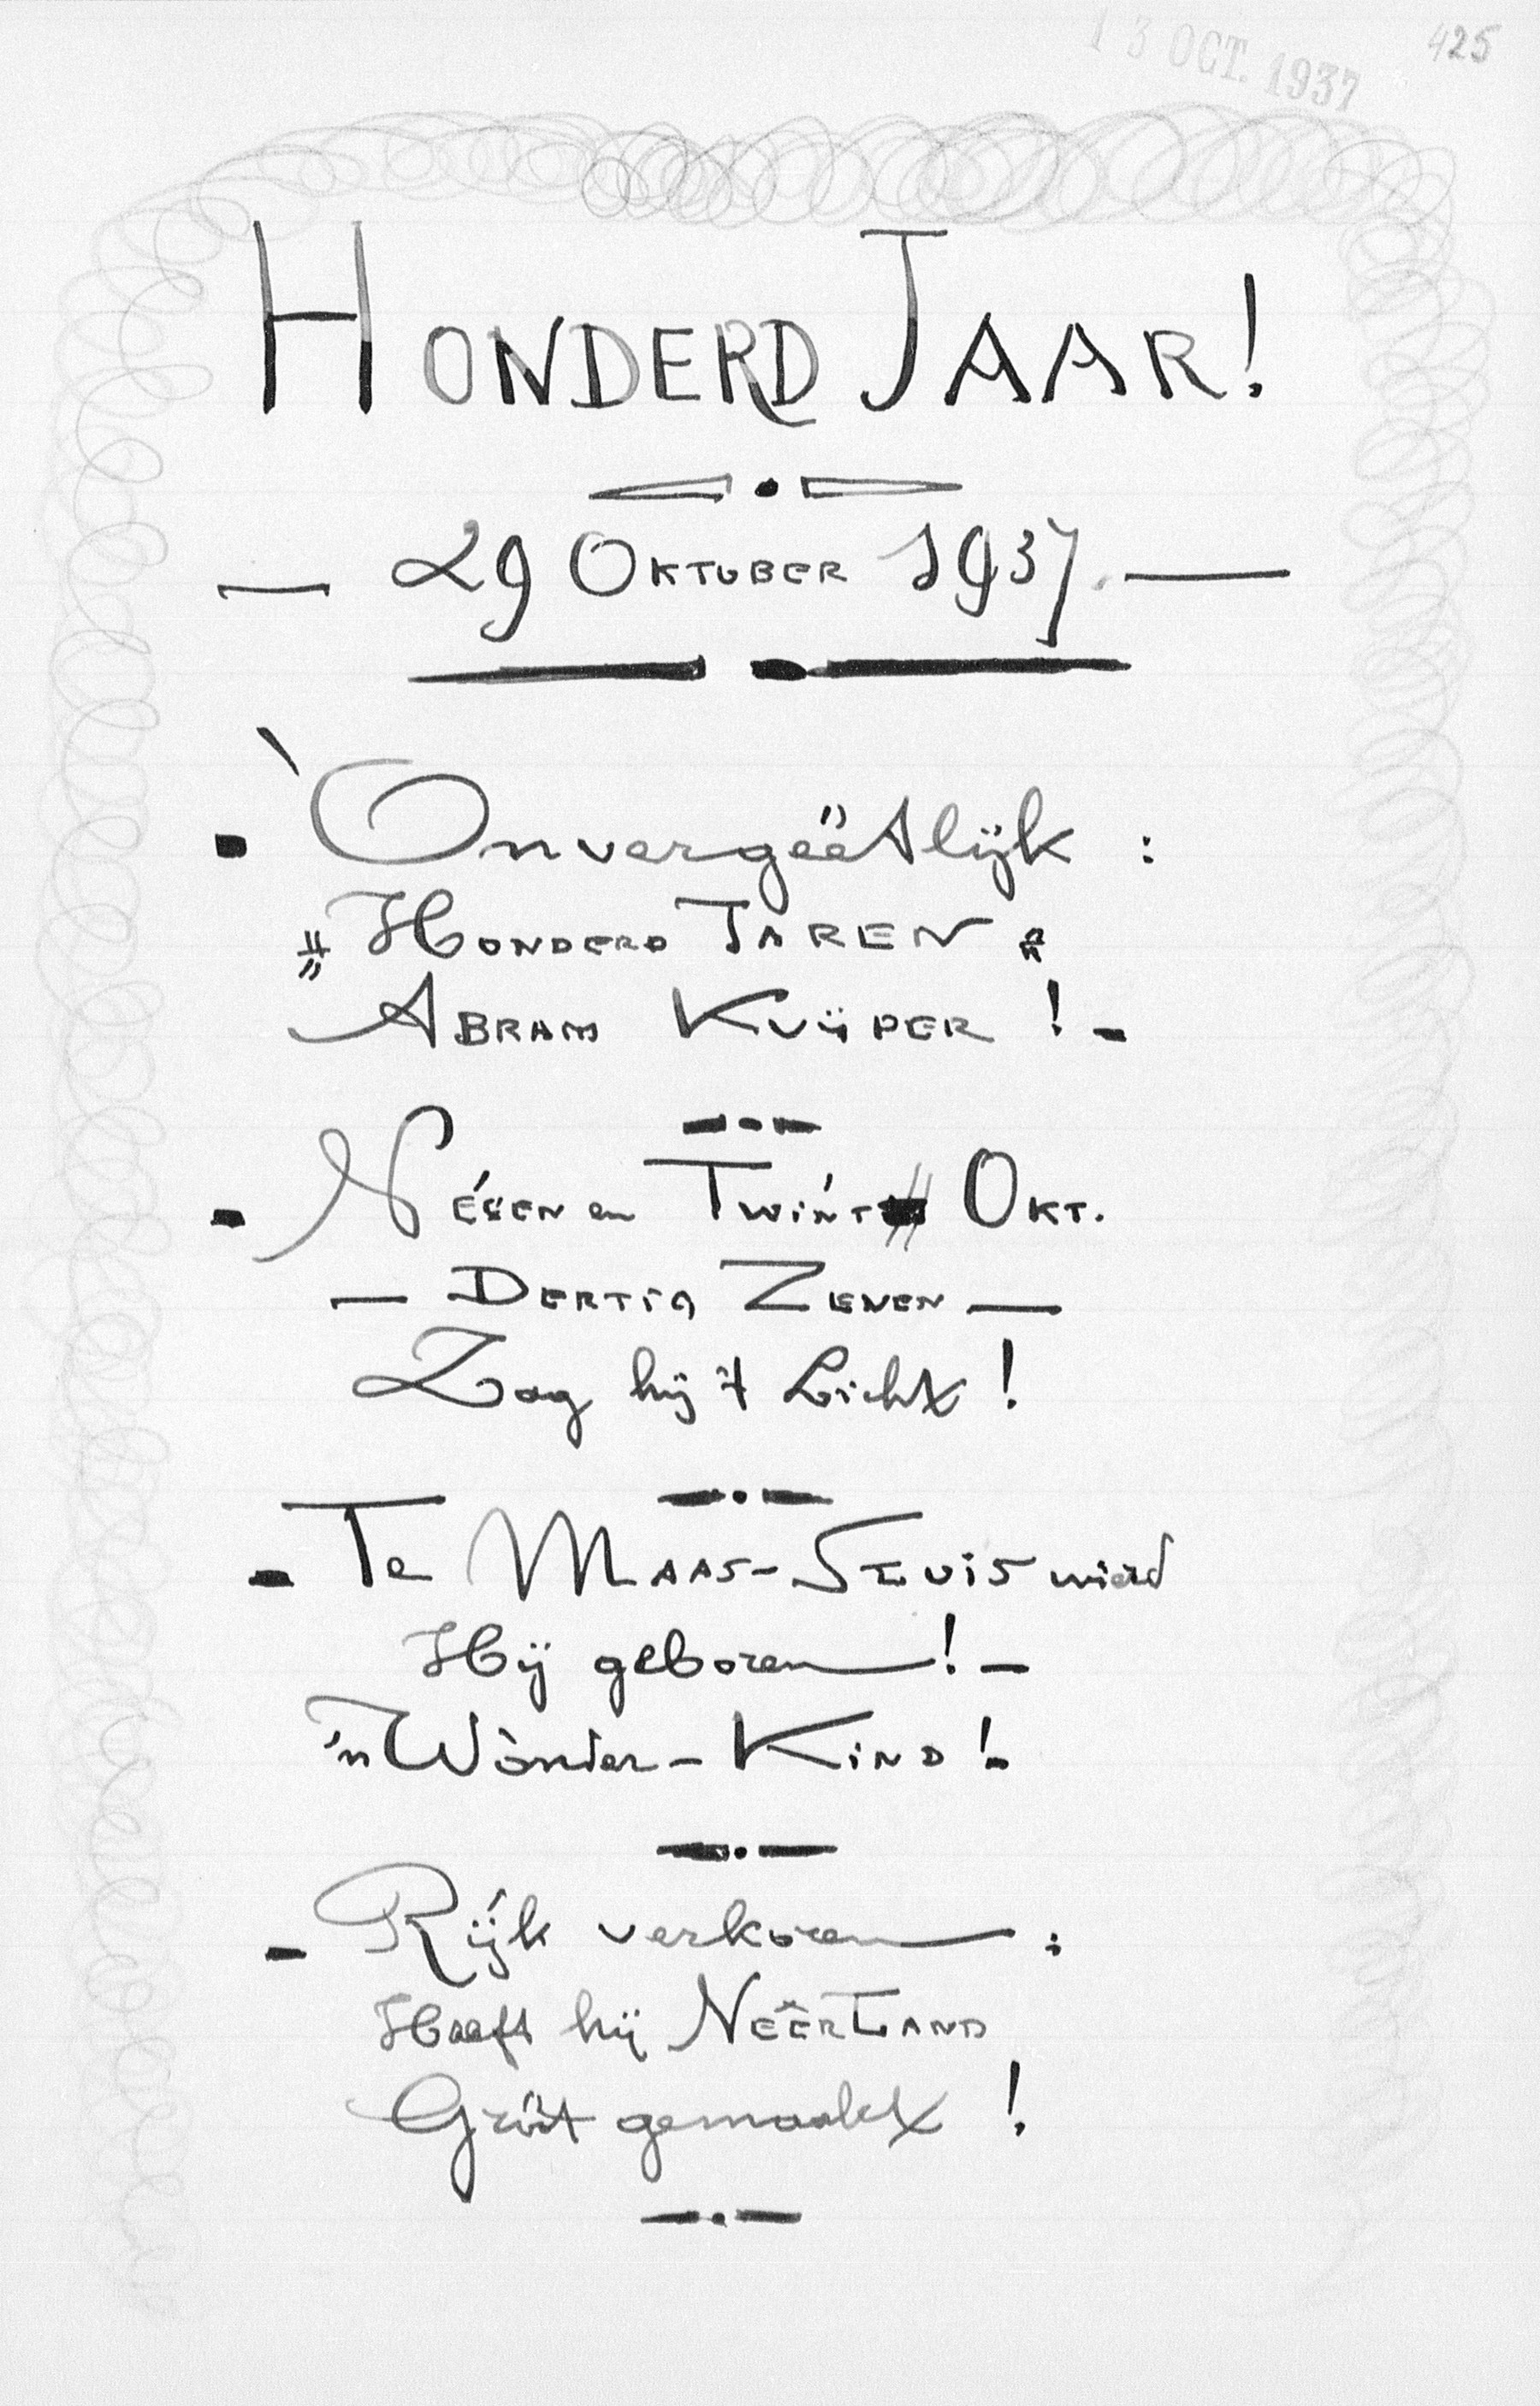 13 OCT. 1937
425
HONDERD JAAR!
— 29 OKTOBER 1937. —
- Onvergeëtlijk :
„HONDERD JAREN"
ABRAM KUIJPER ! -
- NÉGEN en TWÍNT OKT.
— DERTIG ZEVEN —
Zag hij 't Licht !
- Te MAAS-SLUIS wierd
Hij geboren ! -
'n Wonder - KIND !-
- Rijk verkoren :
Heeft hij NEÊRLAND
Gróót gemaakt !